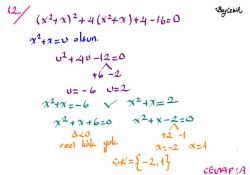 12/ (x²+x)²+4(x²+x)+4-16=0
x²+x=u olsun.
u²+4u-12=0
+6 -2
u=-6 u=2
x²+x=-6 ✓ x²+x=2
x²+x+6=0 x²+x-2=0
Δ<0 +2 -1
reel kök yok x=-2 x=1
Ç.K={-2,1}
CEVAP:A